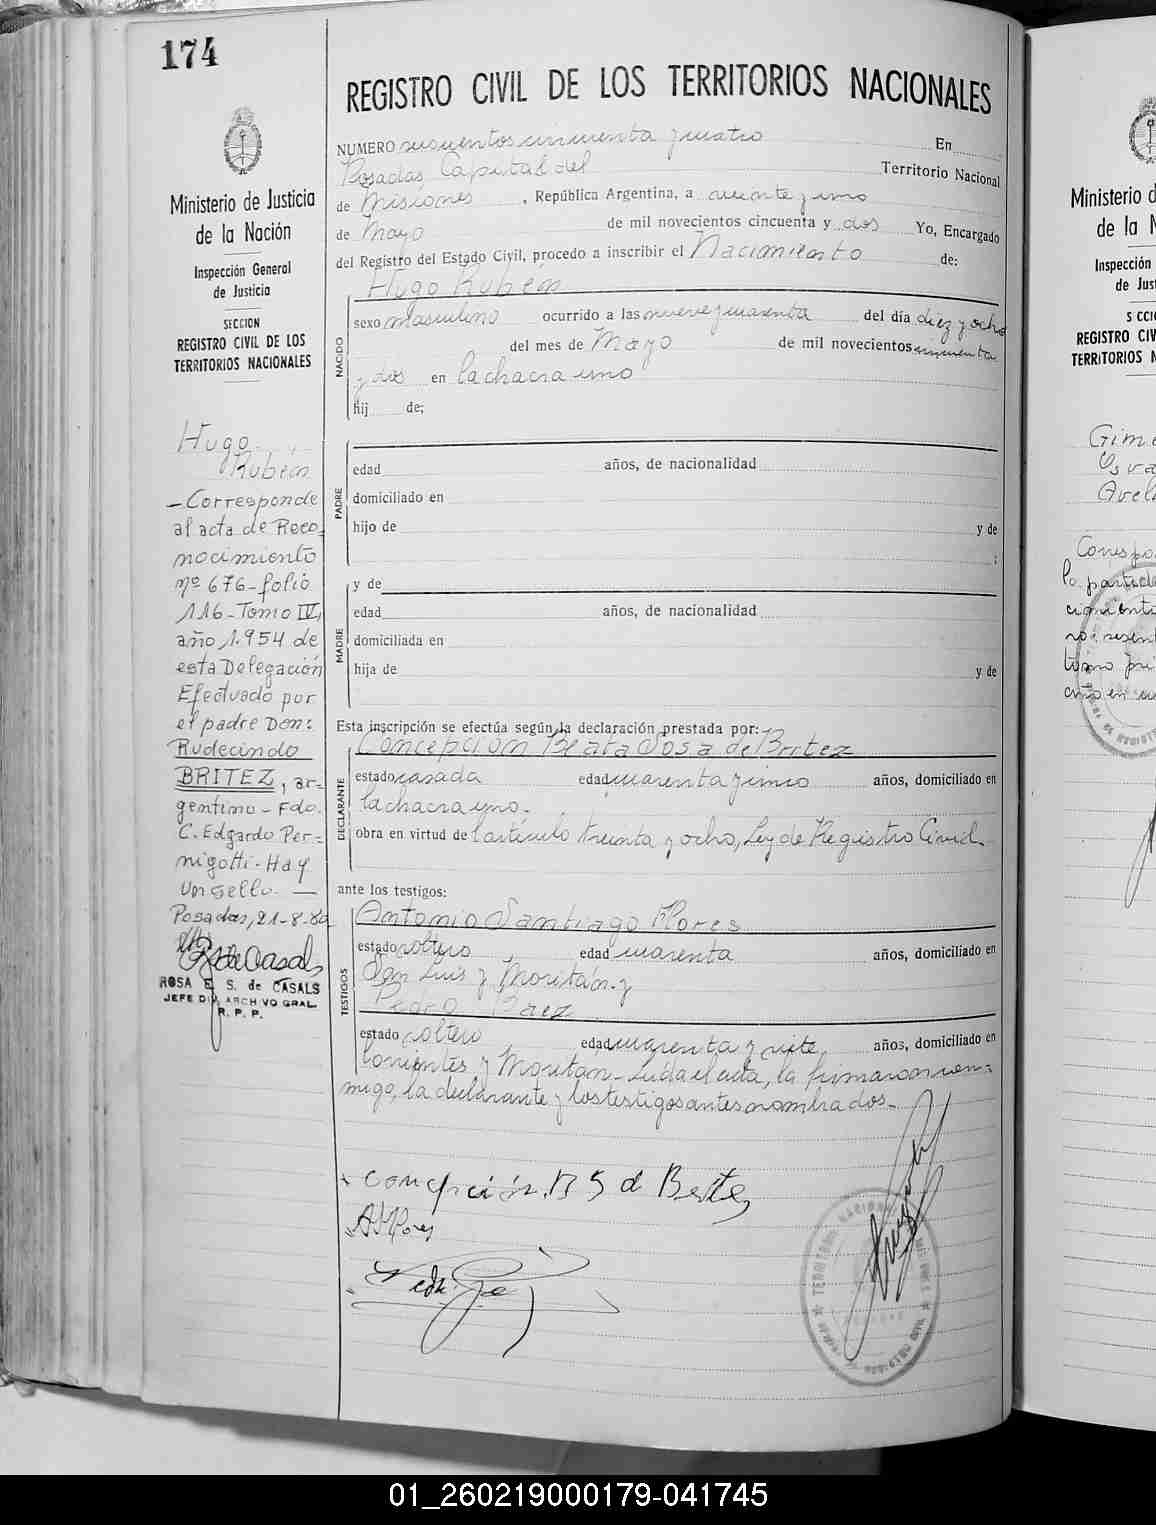 174
REGISTRO CIVIL DE LOS TERRITORIOS NACIONALES
Ministerio de Justicia
de la Nación
Inspección General
de Justicia
SECCION
REGISTRO CIVIL DE LOS
TERRITORIOS NACIONALES
Hugo
Rubén
- Corresponde
al acta de Reco-
nocimiento
nº 676 - folio
116 - Tomo IV,
año 1.954 de
esta Delegación
Efectuado por
el padre Don:
Rudecindo
BRITEZ, ar-
gentino - Fdo.
C. Edgardo Per-
nigotti - Hay
un sello. —
Posadas, 21-8-80
ROSA E. S. de CASALS
JEFE DIV. ARCHIVO GRAL.
R. P. P.
NUMERO seiscientos cincuenta y cuatro En
Posadas, Capital del Territorio Nacional
de Misiones, República Argentina, a veinte y uno
de Mayo de mil novecientos cincuenta y dos Yo, Encargado
del Registro del Estado Civil, procedo a inscribir el Nacimiento de:
Hugo Rubén
NACIDO
sexo masculino ocurrido a las nueve y cuarenta del día diez y ocho
del mes de Mayo de mil novecientos cincuenta
y dos en la chacra uno
hij de;
PADRE
edad años, de nacionalidad
domiciliado en
hijo de y de
;
MADRE
y de
edad años, de nacionalidad
domiciliada en
hija de y de
Esta inscripción se efectúa según la declaración prestada por:
DECLARANTE
Concepción Beata Sosa de Britez
estado casada edad cuarenta y cinco años, domiciliado en
la chacra uno.
obra en virtud de l'artículo treinta y ocho, Ley de Registro Civil.
ante los testigos:
TESTIGOS
Antonio Santiago Flores
estado soltero edad cuarenta años, domiciliado en
San Luis y Moritán. y
Pedro Baez
estado soltero edad cuarenta y siete años, domiciliado en
Corrientes y Moritan - Leída el acta, la firmaron con-
migo, la declarante y los testigos antes nombrados.
Concepción B S d Britez
A S Flores
Ministerio d
de la N
Inspección
de Jus
REGISTRO CIV
TERRITORIOS N
01_260219000179-041745